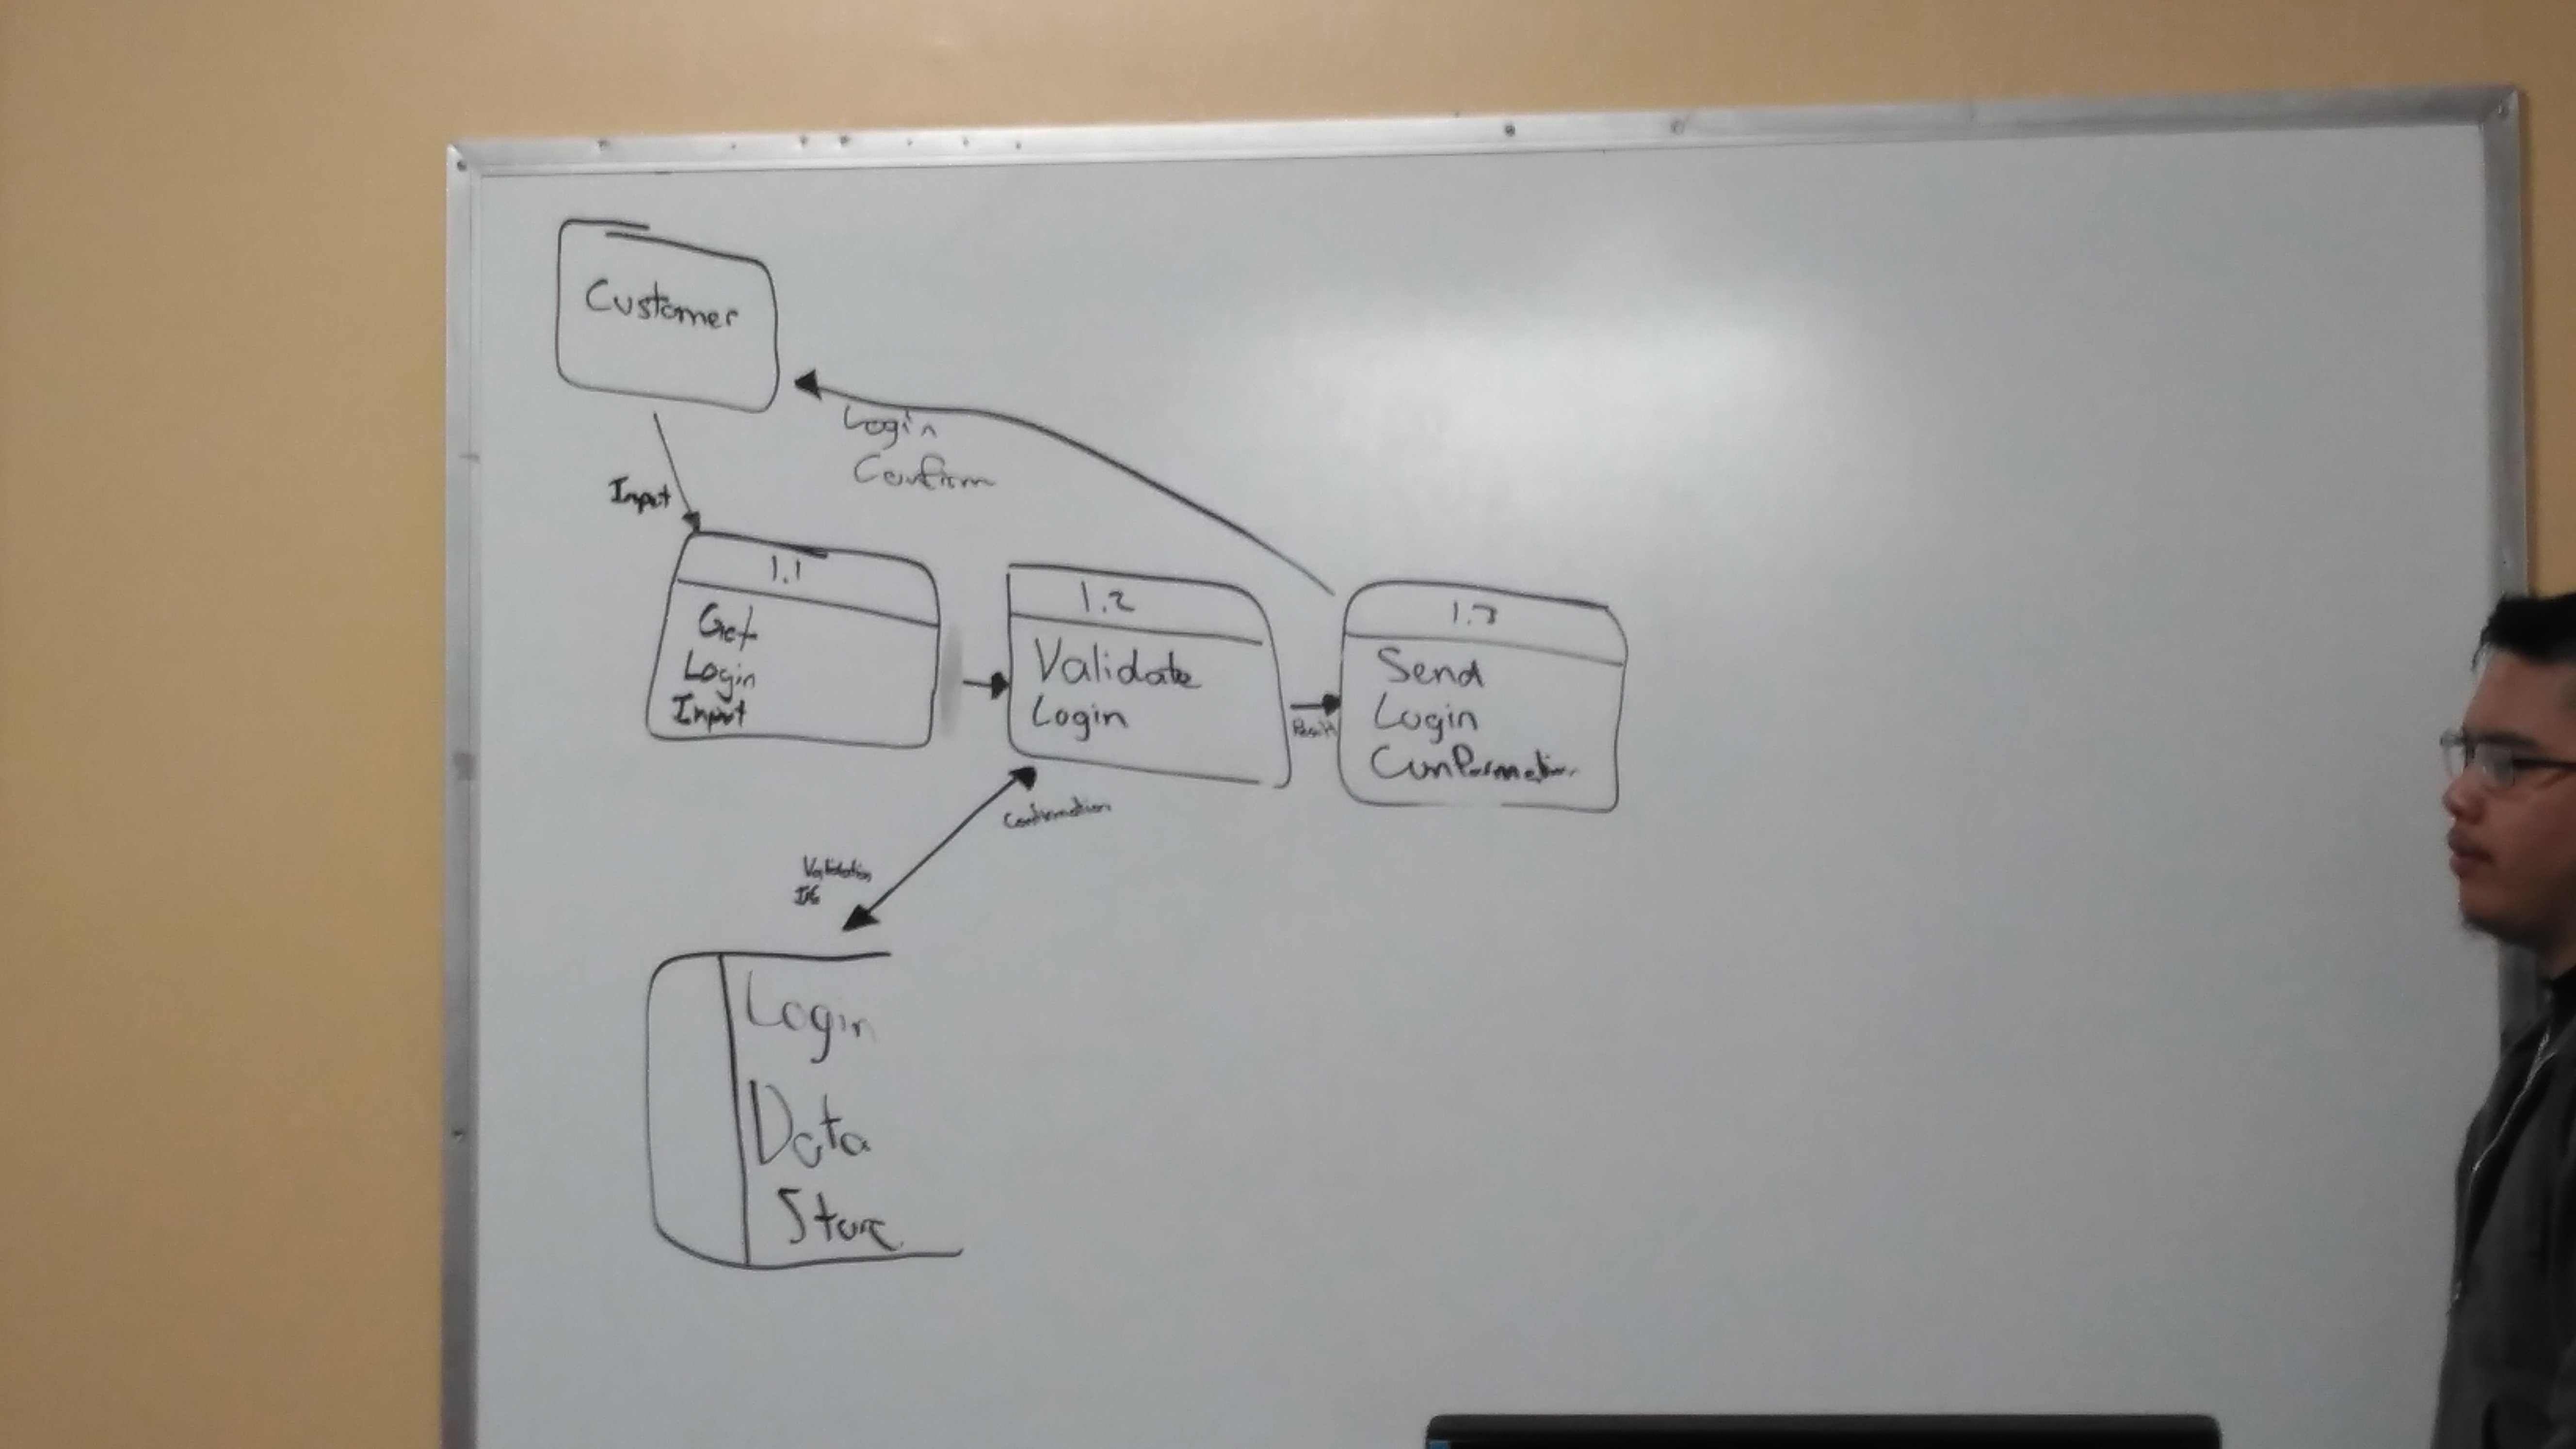 Customer
Login
Confirm
Input
1.1
Get
Login
Input
1.2
Validate
Login
Result
1.3
Send
Login
Confirmation
Confirmation
Validation
Login
Data
Store